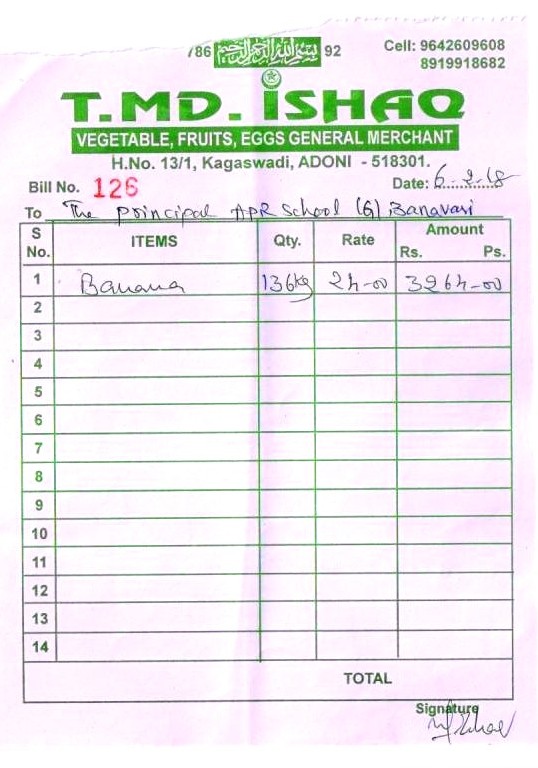 786 بسم الله الرحمن الرحيم 92
Cell: 9642609608
8919918682
T.MD. ISHAQ
VEGETABLE, FRUITS, EGGS GENERAL MERCHANT
H.No. 13/1, Kagaswadi, ADONI - 518301.
Bill No. 126 Date: 6.2.18
To The principal APR School (G) Banavasi
S No. ITEMS Qty. Rate Amount Rs. Ps.
1 Banana 136kg 24-00 3264-00
2
3
4
5
6
7
8
9
10
11
12
13
14
TOTAL
Signature